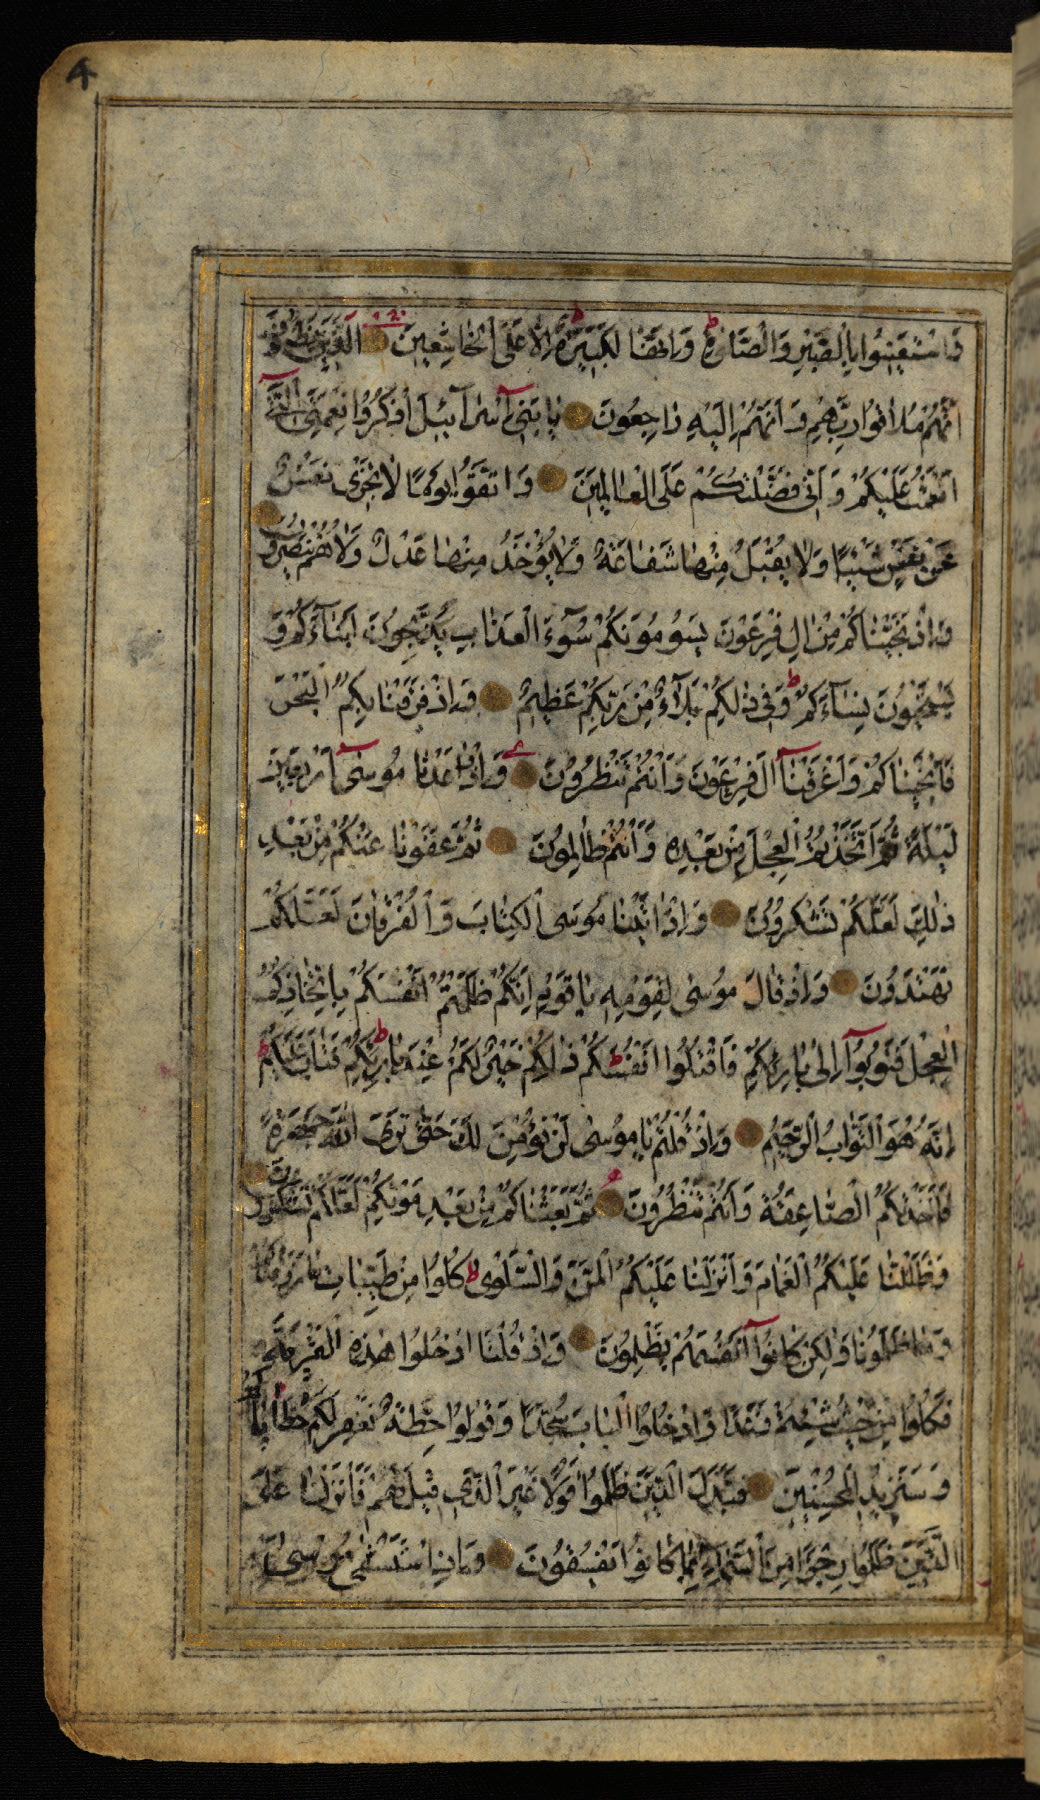 4
وَاسْتَعِينُوا بِالصَّبْرِ وَالصَّلٰوةِ وَاِنَّهَا لَكَبِيرَةٌ اِلَّا عَلَى الْخَاشِعِينَ الَّذِينَ يَظُنُّونَ
اَنَّهُمْ مُلَاقُوا رَبِّهِمْ وَاَنَّهُمْ اِلَيْهِ رَاجِعُونَ يَا بَنِي اِسْرَآئِيلَ اذْكُرُوا نِعْمَتِيَ الَّتِي
اَنْعَمْتُ عَلَيْكُمْ وَاَنِّي فَضَّلْتُكُمْ عَلَى الْعَالَمِينَ وَاتَّقُوا يَوْمًا لَا تَجْزِي نَفْسٌ
عَنْ نَفْسٍ شَيْئًا وَلَا يُقْبَلُ مِنْهَا شَفَاعَةٌ وَلَا يُؤْخَذُ مِنْهَا عَدْلٌ وَلَا هُمْ يُنْصَرُونَ
وَاِذْ نَجَّيْنَاكُمْ مِنْ اٰلِ فِرْعَوْنَ يَسُومُونَكُمْ سُوٓءَ الْعَذَابِ يُذَبِّحُونَ اَبْنَآءَكُمْ وَ
يَسْتَحْيُونَ نِسَآءَكُمْ وَفِي ذٰلِكُمْ بَلَآءٌ مِنْ رَبِّكُمْ عَظِيمٌ وَاِذْ فَرَقْنَا بِكُمُ الْبَحْرَ
فَاَنْجَيْنَاكُمْ وَاَغْرَقْنَآ اٰلَ فِرْعَوْنَ وَاَنْتُمْ تَنْظُرُونَ وَاِذْ وَاعَدْنَا مُوسٰٓى اَرْبَعِينَ
لَيْلَةً ثُمَّ اتَّخَذْتُمُ الْعِجْلَ مِنْ بَعْدِهِ وَاَنْتُمْ ظَالِمُونَ ثُمَّ عَفَوْنَا عَنْكُمْ مِنْ بَعْدِ
ذٰلِكَ لَعَلَّكُمْ تَشْكُرُونَ وَاِذْ اٰتَيْنَا مُوسَى الْكِتَابَ وَالْفُرْقَانَ لَعَلَّكُمْ
تَهْتَدُونَ وَاِذْ قَالَ مُوسٰى لِقَوْمِهِ يَا قَوْمِ اِنَّكُمْ ظَلَمْتُمْ اَنْفُسَكُمْ بِاتِّخَاذِكُمُ
الْعِجْلَ فَتُوبُوٓا اِلٰى بَارِئِكُمْ فَاقْتُلُوا اَنْفُسَكُمْ ذٰلِكُمْ خَيْرٌ لَكُمْ عِنْدَ بَارِئِكُمْ فَتَابَ عَلَيْكُمْ
اِنَّهُ هُوَ التَّوَّابُ الرَّحِيمُ وَاِذْ قُلْتُمْ يَا مُوسٰى لَنْ نُؤْمِنَ لَكَ حَتّٰى نَرَى اللّٰهَ جَهْرَةً
فَاَخَذَتْكُمُ الصَّاعِقَةُ وَاَنْتُمْ تَنْظُرُونَ ثُمَّ بَعَثْنَاكُمْ مِنْ بَعْدِ مَوْتِكُمْ لَعَلَّكُمْ تَشْكُرُونَ
وَظَلَّلْنَا عَلَيْكُمُ الْغَمَامَ وَاَنْزَلْنَا عَلَيْكُمُ الْمَنَّ وَالسَّلْوٰى كُلُوا مِنْ طَيِّبَاتِ مَا رَزَقْنَاكُمْ
وَمَا ظَلَمُونَا وَلٰكِنْ كَانُوٓا اَنْفُسَهُمْ يَظْلِمُونَ وَاِذْ قُلْنَا ادْخُلُوا هٰذِهِ الْقَرْيَةَ
فَكُلُوا مِنْهَا حَيْثُ شِئْتُمْ رَغَدًا وَادْخُلُوا الْبَابَ سُجَّدًا وَقُولُوا حِطَّةٌ نَغْفِرْ لَكُمْ خَطَايَاكُمْ
وَسَنَزِيدُ الْمُحْسِنِينَ فَبَدَّلَ الَّذِينَ ظَلَمُوا قَوْلًا غَيْرَ الَّذِي قِيلَ لَهُمْ فَاَنْزَلْنَا عَلَى
الَّذِينَ ظَلَمُوا رِجْزًا مِنَ السَّمَآءِ بِمَا كَانُوا يَفْسُقُونَ وَاِذِ اسْتَسْقٰى مُوسٰى